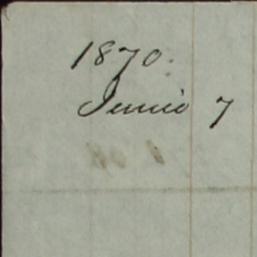 1870.
Junio 7